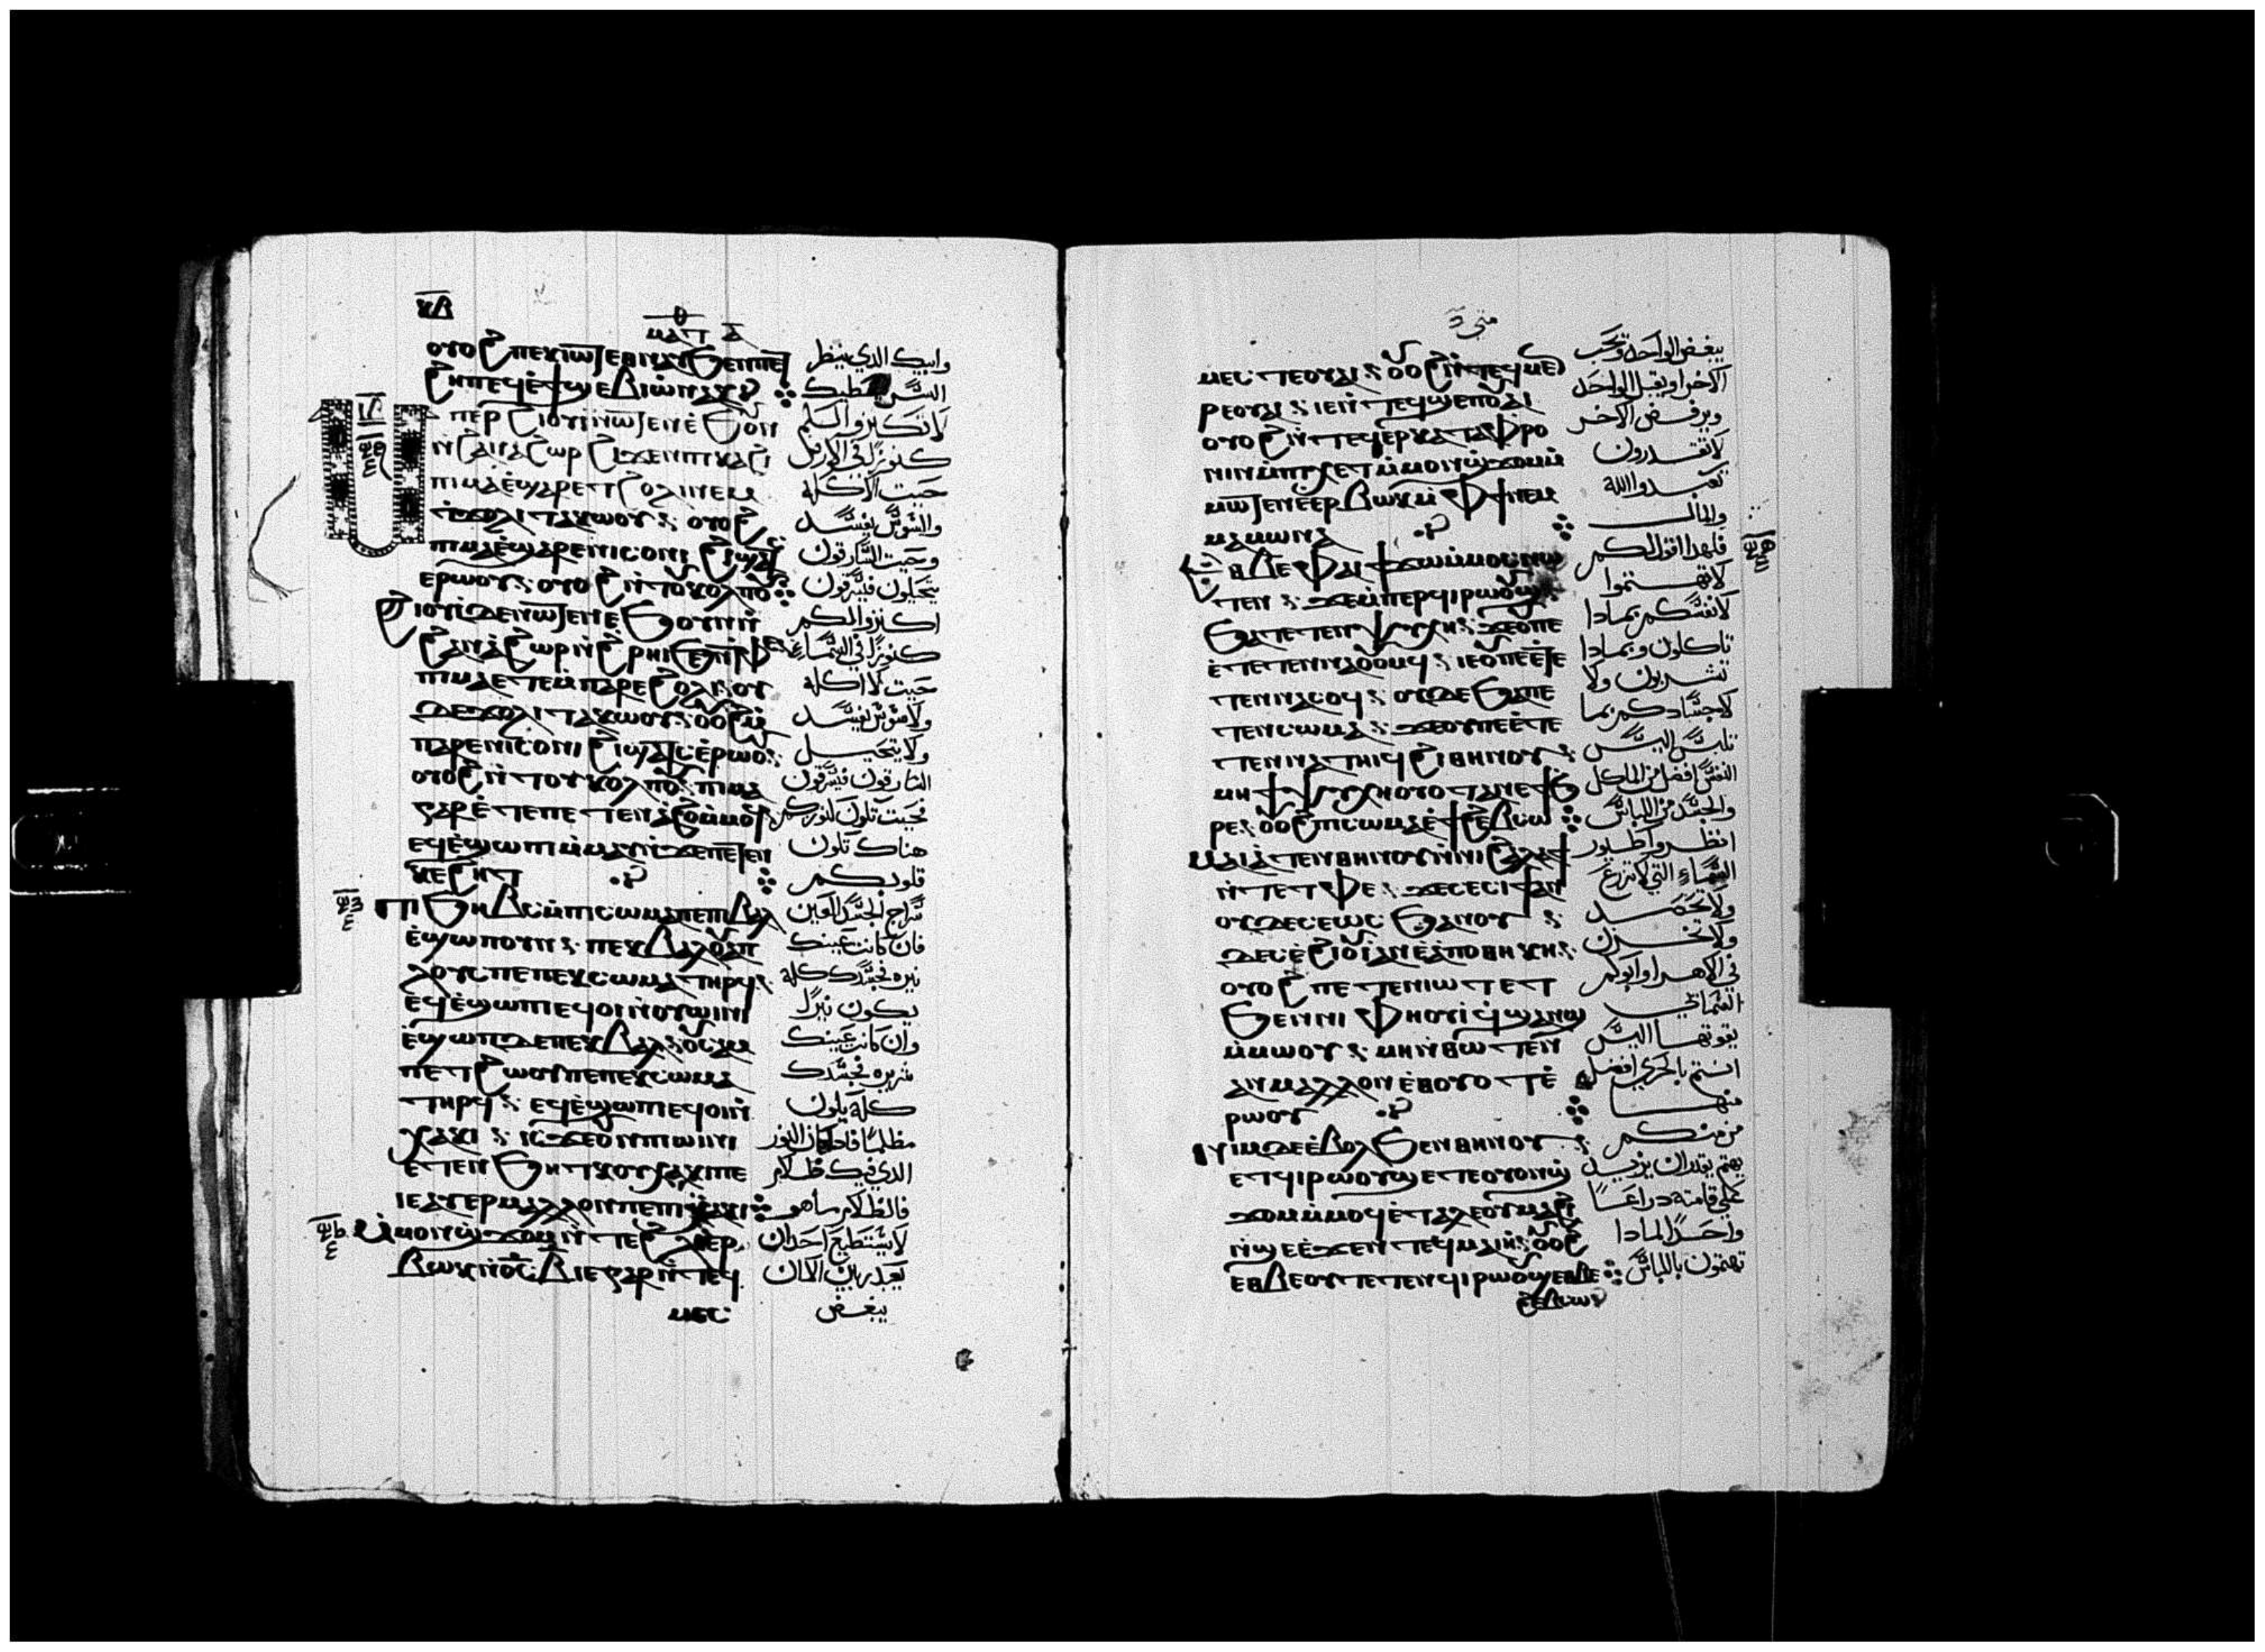 ⲕⲃ
ⲙⲁⲧ ⲁ
ⲟⲩⲟϩ ⲡⲉⲕⲓⲱⲧ ⲉⲑⲛⲁⲩ ϧⲉⲛⲡⲉⲧ
ϩⲏⲡ ⲉϥⲉ̀ϯϣⲉⲃⲓⲱ̀ ⲛⲁⲕ
ⲙⲡⲉⲣϩⲓⲟⲩⲓ̀ ⲛⲱⲧⲉⲛ ⲉ̀ϧⲟⲩⲛ
ⲛ̀ϩⲁⲛⲁϩⲱⲣ ϩⲓϫⲉⲛ ⲡⲓⲕⲁϩⲓ
ⲡⲓⲙⲁ ⲉ̀ϣⲁⲣⲉ ϯϩⲟⲗⲓ ⲛⲉⲙ
ϯϫⲟⲗⲓ ⲧⲁⲕⲱⲟⲩ ⲟⲩⲟϩ
ⲡⲓⲙⲁ ⲉ̀ϣⲁⲣⲉ ⲛⲓⲥⲟⲛⲓ ϩⲓϣⲁⲧⲥ
ⲉⲣⲱⲟⲩ ⲟⲩⲟϩ ⲛ̀ⲧⲟⲩⲕⲟⲗⲡⲟⲩ
ϩⲓⲟⲩⲓ̀ ⲇⲉ ⲛⲱⲧⲉⲛ ⲉϧⲟⲩⲛ ⲛ̀
ϩⲁⲛⲁ̀ϩⲱⲣ ⲛ̀ϩⲣⲏⲓ ϧⲉⲛ ⲧ̀ⲫⲉ
ⲡⲓⲙⲁ ⲉⲧⲉ ⲙ̀ⲡⲁⲣⲉ ϩⲟⲗⲓ ⲟⲩ
ⲇⲉ ϫⲟⲗⲓ ⲧⲁⲕⲱⲟⲩ ⲟⲩⲟϩ ⲙ̀
ⲡⲁⲣⲉ ⲛⲓⲥⲟⲛⲓ ϩⲓϣⲁⲧⲥ ⲉ̀ⲣⲱⲟⲩ
ⲟⲩⲟϩ ⲛ̀ⲧⲟⲩⲕⲟⲗⲡⲟⲩ ⲡⲓⲙⲁ
ⲅⲁⲣ ⲉ̀ⲧⲉ ⲡⲉⲧⲉⲛⲁ̀ϩⲟ ⲙ̀ⲙⲟϥ
ⲉϥⲉ̀ϣⲱⲡⲓ ⲙ̀ⲙⲁⲩ ⲛ̀ϫⲉ ⲡⲉⲧⲉⲛ
ⲕⲉϩⲏⲧ
ⲡⲓϧⲏⲃⲥ ⲙ̀ⲡⲓⲥⲱⲙⲁ ⲡⲉ ⲡⲓⲃⲁⲗ
ⲉ̀ϣⲱⲡ ⲟⲩⲛ ⲡⲉⲕⲃⲁⲗ ⲟⲩϩⲁⲡ
ⲗⲟⲩⲥ ⲡⲉ ⲡⲉⲕⲥⲱⲙⲁ ⲧⲏⲣϥ
ⲉϥⲉ̀ϣⲱⲡⲓ ⲉϥⲟⲓ ⲛ̀ⲟⲩⲱⲓⲛⲓ
ⲉ̀ϣⲱⲡ ⲇⲉ ⲡⲉⲕⲃⲁⲗ ⲟⲩⲥⲁⲙ
ⲡⲉⲧϩⲱⲟⲩ ⲡⲉ ⲡⲉⲕⲥⲱⲙⲁ
ⲧⲏⲣϥ ⲉϥⲉ̀ϣⲱⲡⲓ ⲉϥⲟⲓ ⲛ̀
ⲭⲁⲕⲓ ⲓⲥϫⲉ ⲟⲩⲛ ⲡⲓⲟⲩⲱⲓⲛⲓ
ⲉⲧⲉⲛϧⲏⲧⲕ ⲟⲩⲭⲁⲕⲓ ⲡⲉ
ⲓⲉ ⲁⲩⲏⲣ ⲙⲁⲗⲗⲟⲛ ⲡⲉ ⲡⲓⲭⲁⲕⲓ
ⲙ̀ⲙⲟⲛ ϣϫⲟⲙ ⲛ̀ⲧⲉ ϩⲗⲓ ⲉⲣ
ⲃⲱⲕ ⲛ̀ϭⲥ ⲃ ⲓⲉ ⲅⲁⲣ ⲛ̀ⲧⲉϥ
ⲙⲉⲥ
وابيك الذي ينظر
السر يعطيك
لا تكنزوا لكم
كنوزًا في الارض
حيث الاكله
والسوس يفسد
وحيث السارقون
يتحيلون فيسرقون
اكنزوا لكم
كنوزًا في السماء
حيث لا اكله
ولا سوس يفسد
ولا يتحيل
السارقون فيسرقون
فحيث تكون كنوزكم
هناك تكون
قلوبكم
سراج الجسد العين
فان كانت عينك
نيره فجسدك كله
يكون نيرًا
وان كانت عينك
شريره فجسدك
كله يكون
مظلمًا فاذا كان النور
الذي فيك ظلام
فالظلام ما هو
لا يستطيع احد ان
يعبد ربين الا ان
يبغض
متى
ⲙⲉⲥ ⲡⲉⲟⲩⲁⲓ ⲟⲩⲟϩ ⲛ̀ⲧⲉϥⲙⲉⲛ
ⲣⲉ ⲟⲩⲁⲓ ⲓⲉ ⲛ̀ⲧⲉϥϣⲉⲡ ⲟⲩⲁⲓ
ⲟⲩⲟϩ ⲛ̀ⲧⲉϥⲉⲣⲕⲁⲧⲁⲫⲣⲟ
ⲛⲓⲛ ⲙ̀ⲡⲓⲭⲉⲧ ⲙ̀ⲙⲟⲛ ϣ̀ϫⲟⲙ ⲙ̀
ⲙⲱⲧⲉⲛ ⲉ̀ⲉⲣⲃⲱⲕ ⲙ̀ⲫϯ ⲛⲉⲙ
ⲙⲁⲙⲱⲛⲁ
ⲉⲑⲃⲉ ⲫⲁⲓ ϯϫⲱ ⲙ̀ⲙⲟⲥ ⲛⲱ
ⲧⲉⲛ ϫⲉ ⲙ̀ⲡⲉⲣϥⲓⲣⲱⲟⲩϣ
ϧⲁ ⲧⲉⲧⲉⲛⲯⲩⲭⲏ ϫⲉ ⲟⲩ ⲡⲉ
ⲉ̀ⲧⲉⲧⲉⲛⲛⲁⲟⲩⲟⲙϥ ⲓⲉ ⲟⲩ ⲡⲉ ⲉ̀ⲧⲉ
ⲧⲉⲛⲛⲁⲥⲟϥ ⲟⲩⲇⲉ ϧⲁ ⲡⲉ
ⲧⲉⲛⲥⲱⲙⲁ ϫⲉ ⲟⲩ ⲡⲉ ⲉ̀ⲧⲉ
ⲧⲉⲛⲛⲁⲧⲏⲓϥ ϩⲓⲑⲏⲛⲟⲩ
ⲙⲏ ϯⲯⲩⲭⲏ ⲟⲩⲟⲧ ⲁⲛ ⲉ̀ϯϧ
ⲣⲉ ⲟⲩⲟϩ ⲡⲓⲥⲱⲙⲁ ⲉ̀ϯϩⲉⲃⲥⲱ
ⲙⲁⲓⲁ̀ⲧⲉⲛ ⲑⲏⲛⲟⲩ ⲛ̀ⲛⲓϩⲁⲗⲁϯ
ⲛ̀ⲧⲉ ⲧⲫⲉ ϫⲉ ⲥⲉⲥⲓϯ ⲁⲛ
ⲟⲩⲇⲉ ⲥⲉⲱⲥϧ ⲁⲛ ⲟⲩ
ⲇⲉ ⲥⲉϩⲓⲟⲩⲓ̀ ⲁⲛ ⲉ̀ⲁ̀ⲡⲟⲑⲏⲕⲏ
ⲟⲩⲟϩ ⲡⲉⲧⲉⲛⲓⲱⲧ ⲉⲧ
ϧⲉⲛ ⲛⲓⲫⲏⲟⲩⲓ̀ ϥϣⲁⲛϣ
ⲙ̀ⲙⲱⲟⲩ ⲙⲏ ⲛ̀ⲑⲱⲧⲉⲛ
ⲁⲛ ⲙⲁⲗⲗⲟⲛ ⲉ̀ⲑⲟⲩⲟⲧ ⲉ̀
ⲣⲱⲟⲩ
ⲛⲓⲙ ⲇⲉ ⲉ̀ⲃⲟⲗ ϧⲉⲛ ⲑⲏⲛⲟⲩ
ⲉⲧϥⲓⲣⲱⲟⲩϣ ⲉⲧⲉ ⲟⲩⲟⲛ ϣ̀
ϫⲟⲙ ⲙ̀ⲙⲟϥ ⲉ̀ⲧⲁⲗⲉ ⲟⲩⲙⲁϩⲓ
ⲛ̀ϣⲉ ⲉ̀ϫⲉⲛ ⲧⲉϥⲙⲁⲓⲏ ⲟⲩⲟϩ
ⲉⲑⲃⲉ ⲟⲩ ⲧⲉⲧⲉⲛϥⲓⲣⲱⲟⲩϣ ⲉⲑⲃⲉ
ϩⲉⲃⲥⲱ
يبغض الواحد ويحب
الاخر او يقبل الواحد
ويرفض الاخر
لا تقدرون
تعبدوا الله
والمال
فلهدا اقول لكم
لا تهتموا
لانفسكم بمادا
تاكلون وبمادا
تشربون ولا
لاجسادكم بما
تلبس اليس
النفس افضل من الماكل
والجسد من اللباس
انظروا طيور
السماء التي لا تزرع
ولا تحصد
ولا تخزن
في الاهراء وابوكم
السمائي
يقوتها اليس
انتم بالحري افضل
منها
من منكم
يهتم يقدر ان يزيد
على قامته دراعًا
واحدًا لمادا
تهتمون باللباس